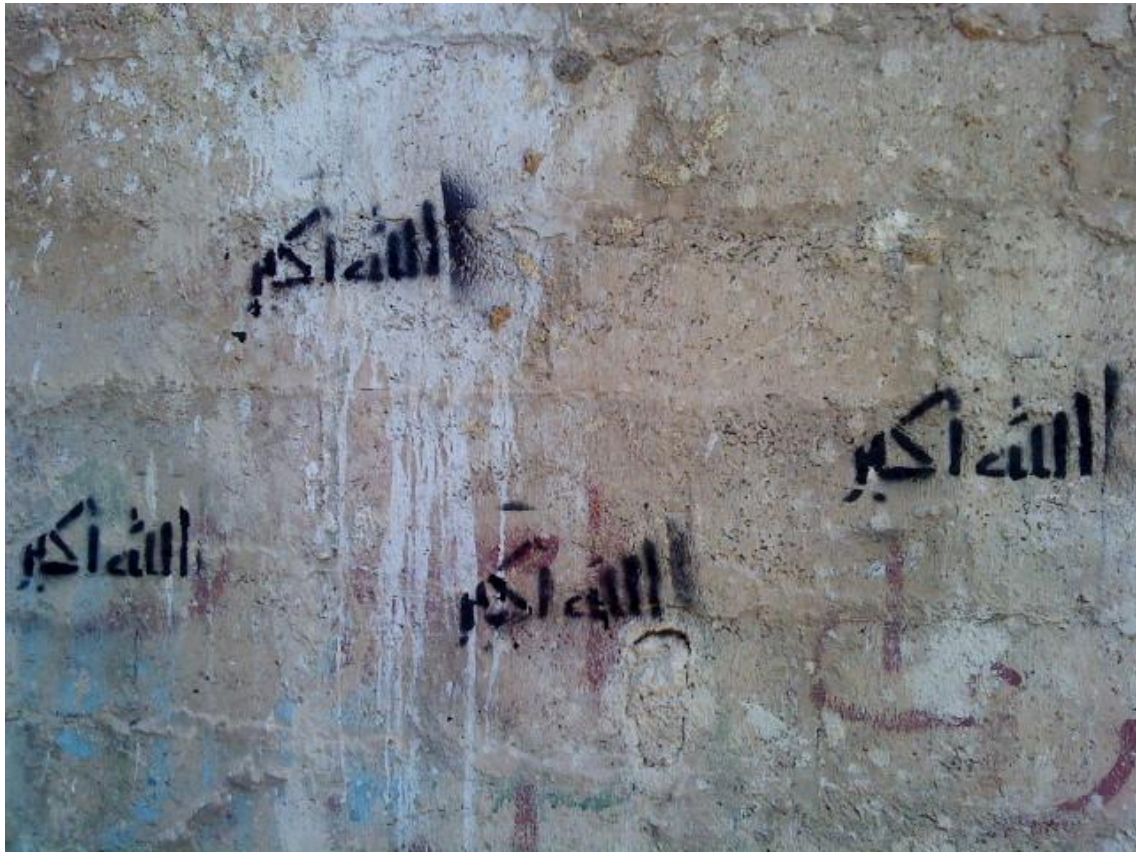 الله أكبر
الله أكبر
الله أكبر
الله أكبر